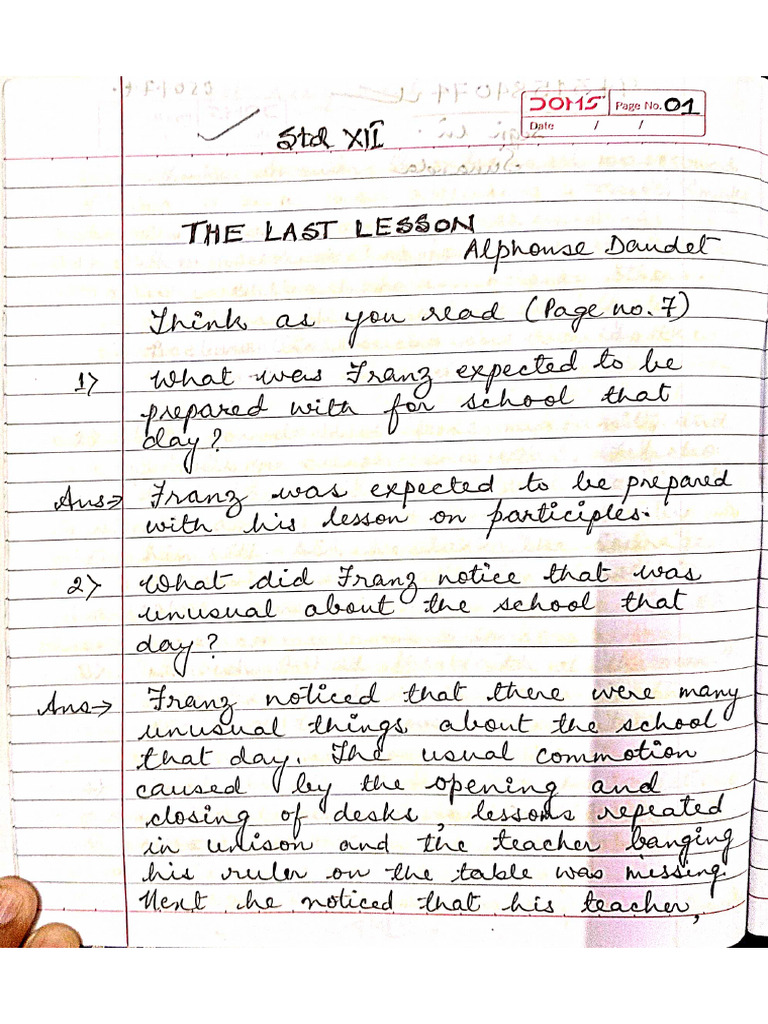 DOMS Page No. 01
Date / /
Std XII
THE LAST LESSON
Alphonse Daudet
Think as you read (Page no. 7)
1) What was Franz expected to be
prepared with for school that
day?
Ans→ Franz was expected to be prepared
with his lesson on participles.
2) What did Franz notice that was
unusual about the school that
day?
Ans→ Franz noticed that there were many
unusual things about the school
that day. The usual commotion
caused by the opening and
closing of desks, lessons repeated
in unison and the teacher banging
his ruler on the table was missing.
Next he noticed that his teacher,